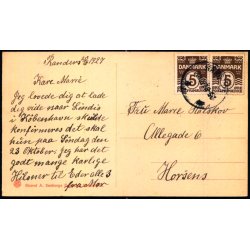 Randers 5/10 1927
Kære Marie
Jeg lovede dig at lade
dig vide naar Gundis
i København skulde
konfirmeres det skal
hun paa Søndag den
23 Oktober. Jeg har det
godt mange kærlige
Hilsner til Eder alle 3
fra Mor
DANMARK
5
DANMARK
5
Frk Marie
Allegade 6
Horsens